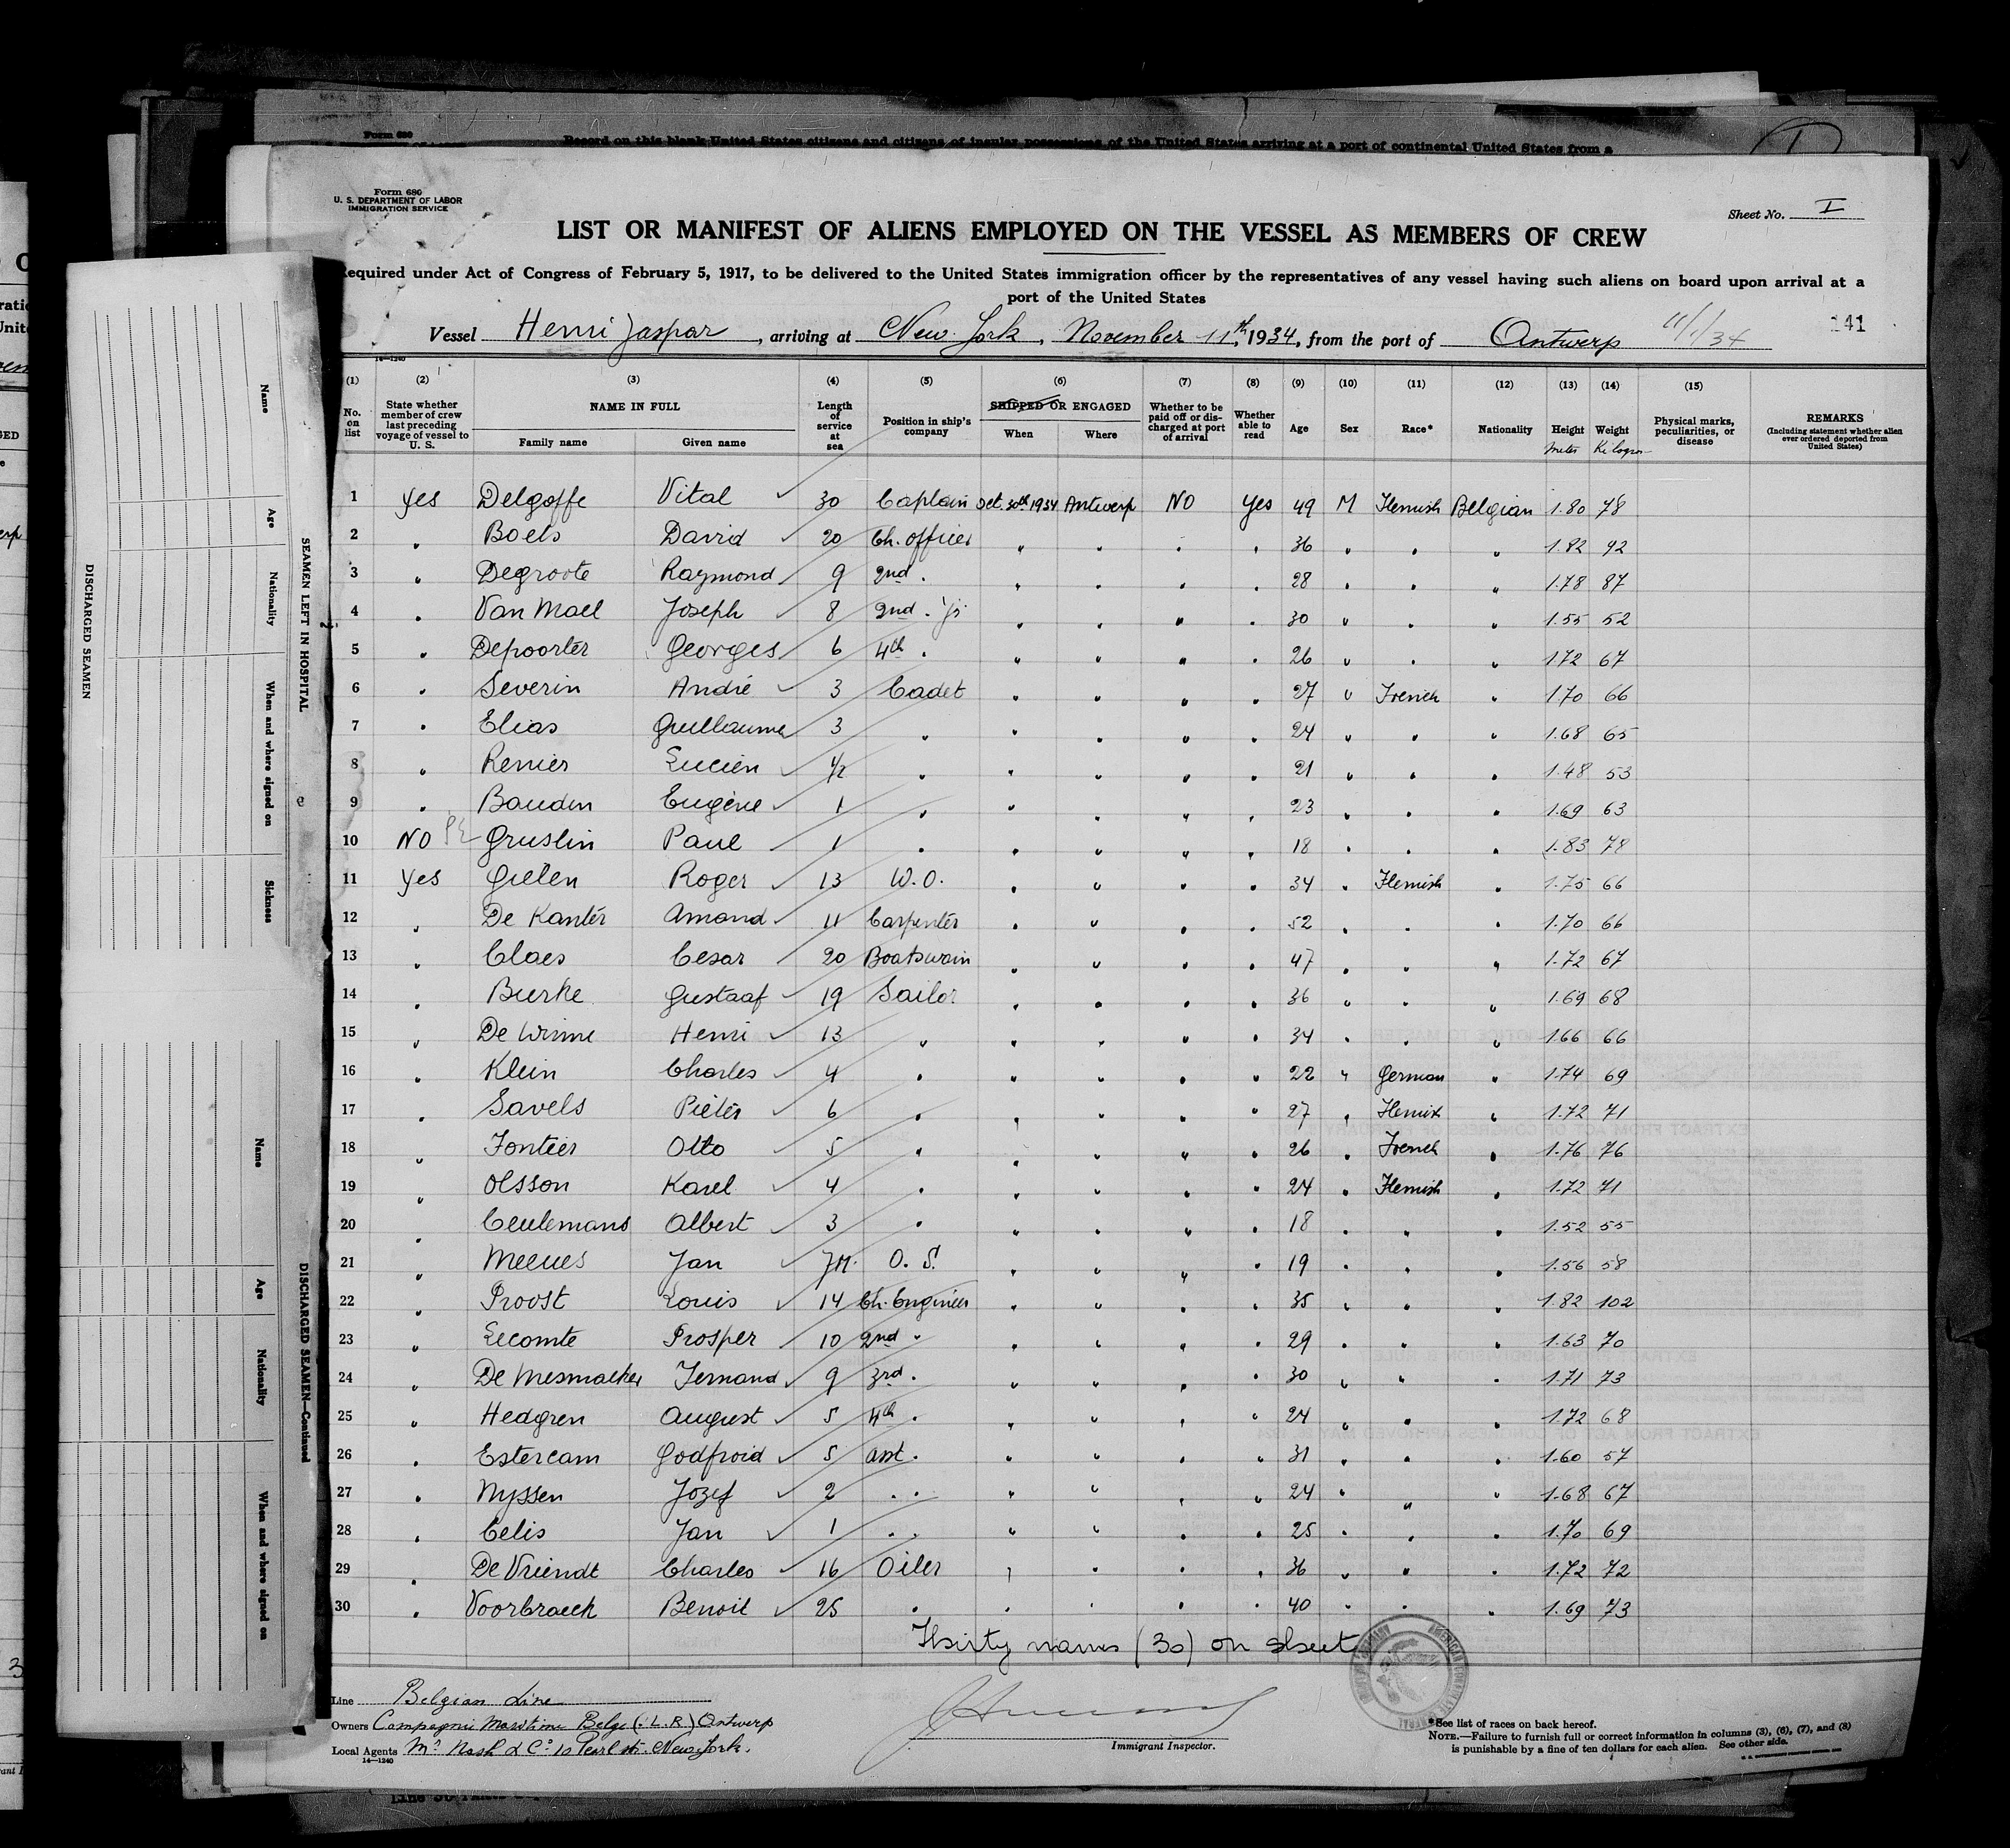 Form 680
Record on this blank United States citizens and citizens of insular possessions of the United States arriving at a port of continental United States from a
Form 680
U. S. DEPARTMENT OF LABOR
IMMIGRATION SERVICE
Sheet No. I
LIST OR MANIFEST OF ALIENS EMPLOYED ON THE VESSEL AS MEMBERS OF CREW
Required under Act of Congress of February 5, 1917, to be delivered to the United States immigration officer by the representatives of any vessel having such aliens on board upon arrival at a
port of the United States
Vessel Henri Jaspar, arriving at New York, November 11th, 1934, from the port of Antwerp 11/11/34 141
14—1240
(1) (2) (3) (4) (5) (6) (7) (8) (9) (10) (11) (12) (13) (14) (15)
No. on list State whether member of crew last preceding voyage of vessel to U. S. NAME IN FULL Family name Given name Length of service at sea Position in ship's company SHIPPED OR ENGAGED When Where Whether to be paid off or discharged at port of arrival Whether able to read Age Sex Race* Nationality Height Meter Weight Kilogr Physical marks, peculiarities, or disease REMARKS (Including statement whether alien ever ordered deported from United States)
1 Yes Delgoffe Vital 30 Captain Oct. 30th 1934 Antwerp NO Yes 49 M Flemish Belgian 1.80 78
2 " Boels David 20 Ch. officer " " " " 36 " " " 1.82 92
3 " Degroote Raymond 9 2nd " " " " " 28 " " " 1.78 87
4 " Van Mael Joseph 8 2nd " Jr " " " " 30 " " " 1.55 52
5 " Depoorter Georges 6 4th " " " " " 26 " " " 1.72 67
6 " Severin André 3 Cadet " " " " 27 " French " 1.70 66
7 " Elias Guillaume 3 " " " " " 24 " " " 1.68 65
8 " Renier Lucien 1/2 " " " " " 21 " " " 1.48 53
9 " Baudin Eugène 1 " " " " " 23 " " " 1.69 63
10 NO Gruslin Paul 1 " " " " " 18 " " " 1.83 78
11 Yes Gielen Roger 13 W.O. " " " " 34 " Flemish " 1.75 66
12 " De Kanter Amand 11 Carpenter " " " " 52 " " " 1.70 66
13 " Claes Cesar 20 Boatswain " " " " 47 " " " 1.72 67
14 " Burke Gustaaf 19 Sailor " " " " 36 " " " 1.69 68
15 " De Winne Henri 13 " " " " " 34 " " " 1.66 66
16 " Klein Charles 4 " " " " " 22 " German " 1.74 69
17 " Savels Pieter 6 " " " " " 27 " Flemish " 1.72 71
18 " Fontier Otto 5 " " " " " 26 " French " 1.76 76
19 " Olsson Karel 4 " " " " " 24 " Flemish " 1.72 71
20 " Ceulemans Albert 3 " " " " " 18 " " " 1.52 55
21 " Meeues Jan 7M. O. S. " " " " 19 " " " 1.56 58
22 " Proost Louis 14 Ch. Engineer " " " " 35 " " " 1.82 102
23 " Lecomte Prosper 10 2nd " " " " " 29 " " " 1.63 70
24 " De Mesmaeker Fernand 9 3rd " " " " " 30 " " " 1.71 73
25 " Hedgren August 5 4th " " " " " 24 " " " 1.72 68
26 " Estercam Godfroid 5 asst. " " " " 31 " " " 1.60 57
27 " Nyssen Jozef 2 " " " " " " 24 " " " 1.68 67
28 " Celis Jan 1 " " " " " " 25 " " " 1.70 69
29 " De Vriendt Charles 16 Oiler " " " " 36 " " " 1.72 72
30 " Voorbraeck Benoit 25 " " " " " 40 " " " 1.69 73
Thirty names (30) on sheet
Line Belgian Line
Owners Compagnie Maritime Belge (L. R.) Antwerp
Local Agents Mr. Nash & Co 10 Pearl str. New York.
14—1240
Immigrant Inspector.
*See list of races on back hereof.
NOTE.—Failure to furnish full or correct information in columns (3), (6), (7), and (8)
is punishable by a fine of ten dollars for each alien. See other side.
DISCHARGED SEAMEN
SEAMEN LEFT IN HOSPITAL
Name
Age
Nationality
When and where signed on
Sickness
DISCHARGED SEAMEN—Continued
Name
Age
Nationality
When and where signed on